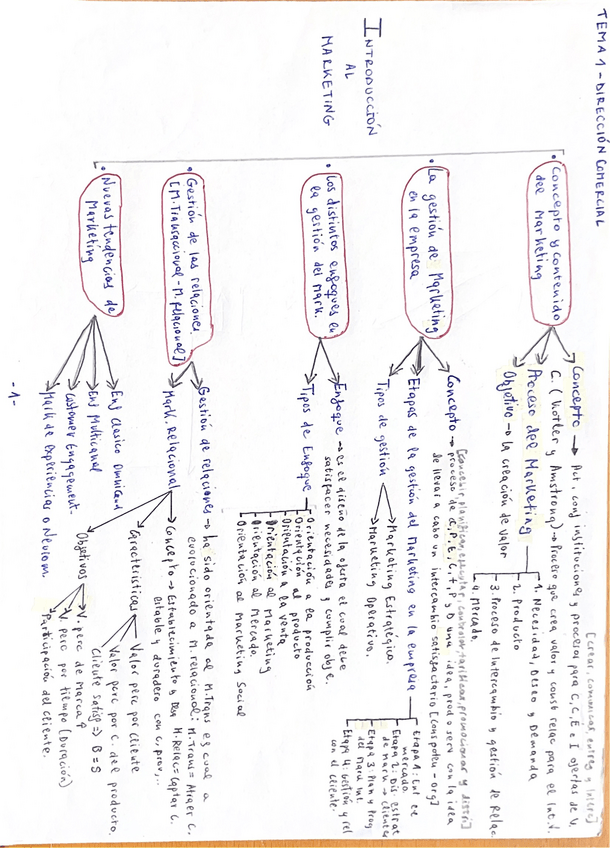 TEMA 1 - DIRECCIÓN COMERCIAL
INTRODUCCIÓN
AL
MARKETING
• Concepto y contenido
del Marketing
[crear, comunicar, entreg y interc]
Concepto → Act, conj instituciones y procesos para C, C, E e I ofertas de V.
C. (Kotler y Amstrong) → Proceso que crea valor y const relac para el Int.V.
Proceso del Marketing
1. Necesidad, Deseo y Demanda
2. Producto
3. Proceso de Intercambio y gestión de Relac
4. Mercado
Objetivo → la creación de valor
• La gestión de Marketing
en la empresa
[concebir, planificar, ejecutar, controlar, promocionar y distri]
Concepto → proceso de C, P, E, C, t, P y D una idea, prod o serv con la idea
de llevar a cabo un intercambio satisfactorio [cons poten - org]
Etapas de la gestión del Marketing en la empresa
Etapa 1: Ent el
mercado.
Etapa 2: Dis. estrat
de mark → clientes
Etapa 3: Plan y Prog
del Mark Int.
Etapa 4: Gestión y rel
con el cliente.
Tipos de gestión
Marketing Estratégico.
Marketing Operativo.
• Los distintos enfoques en
la gestión del mark.
Enfoque → es el diseño de la oferta el cual debe
satisfacer necesidades y cumplir obje.
Tipos de Enfoque
Orientación a la producción
Orientación al producto
Orientación a la venta
Orientación al Marketing
Orientación al Mercado.
Orientación al Marketing Social
• Gestión de las relaciones
[M.Transaccional - M.Relacional]
Gestión de relaciones → ha sido orientada al M.Trans el cual a
evolucionado a M. relacional: M.Trans = Atraer C.
M.Relac = Captar C.
Mark. Relacional
Concepto → Establecimiento y Des
estable y duradero con c, prov,...
Características
Valor perc por cliente
Valor perc por C. del producto.
Cliente Satisf => B = S
Objetivos
V. perc de Marca
V. perc por tiempo [Duración]
Participación del cliente.
• Nuevas tendencias de
Marketing
Enf Clásico Omnicanal
Enf Multicanal
Customer Engagement
Mark de Experiencias o Neurom.
-1-